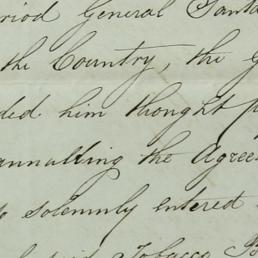 riod General Santa
the Country, the G
ded him thought p
annulling the Agree
o solemnly entered
Tobacco Po